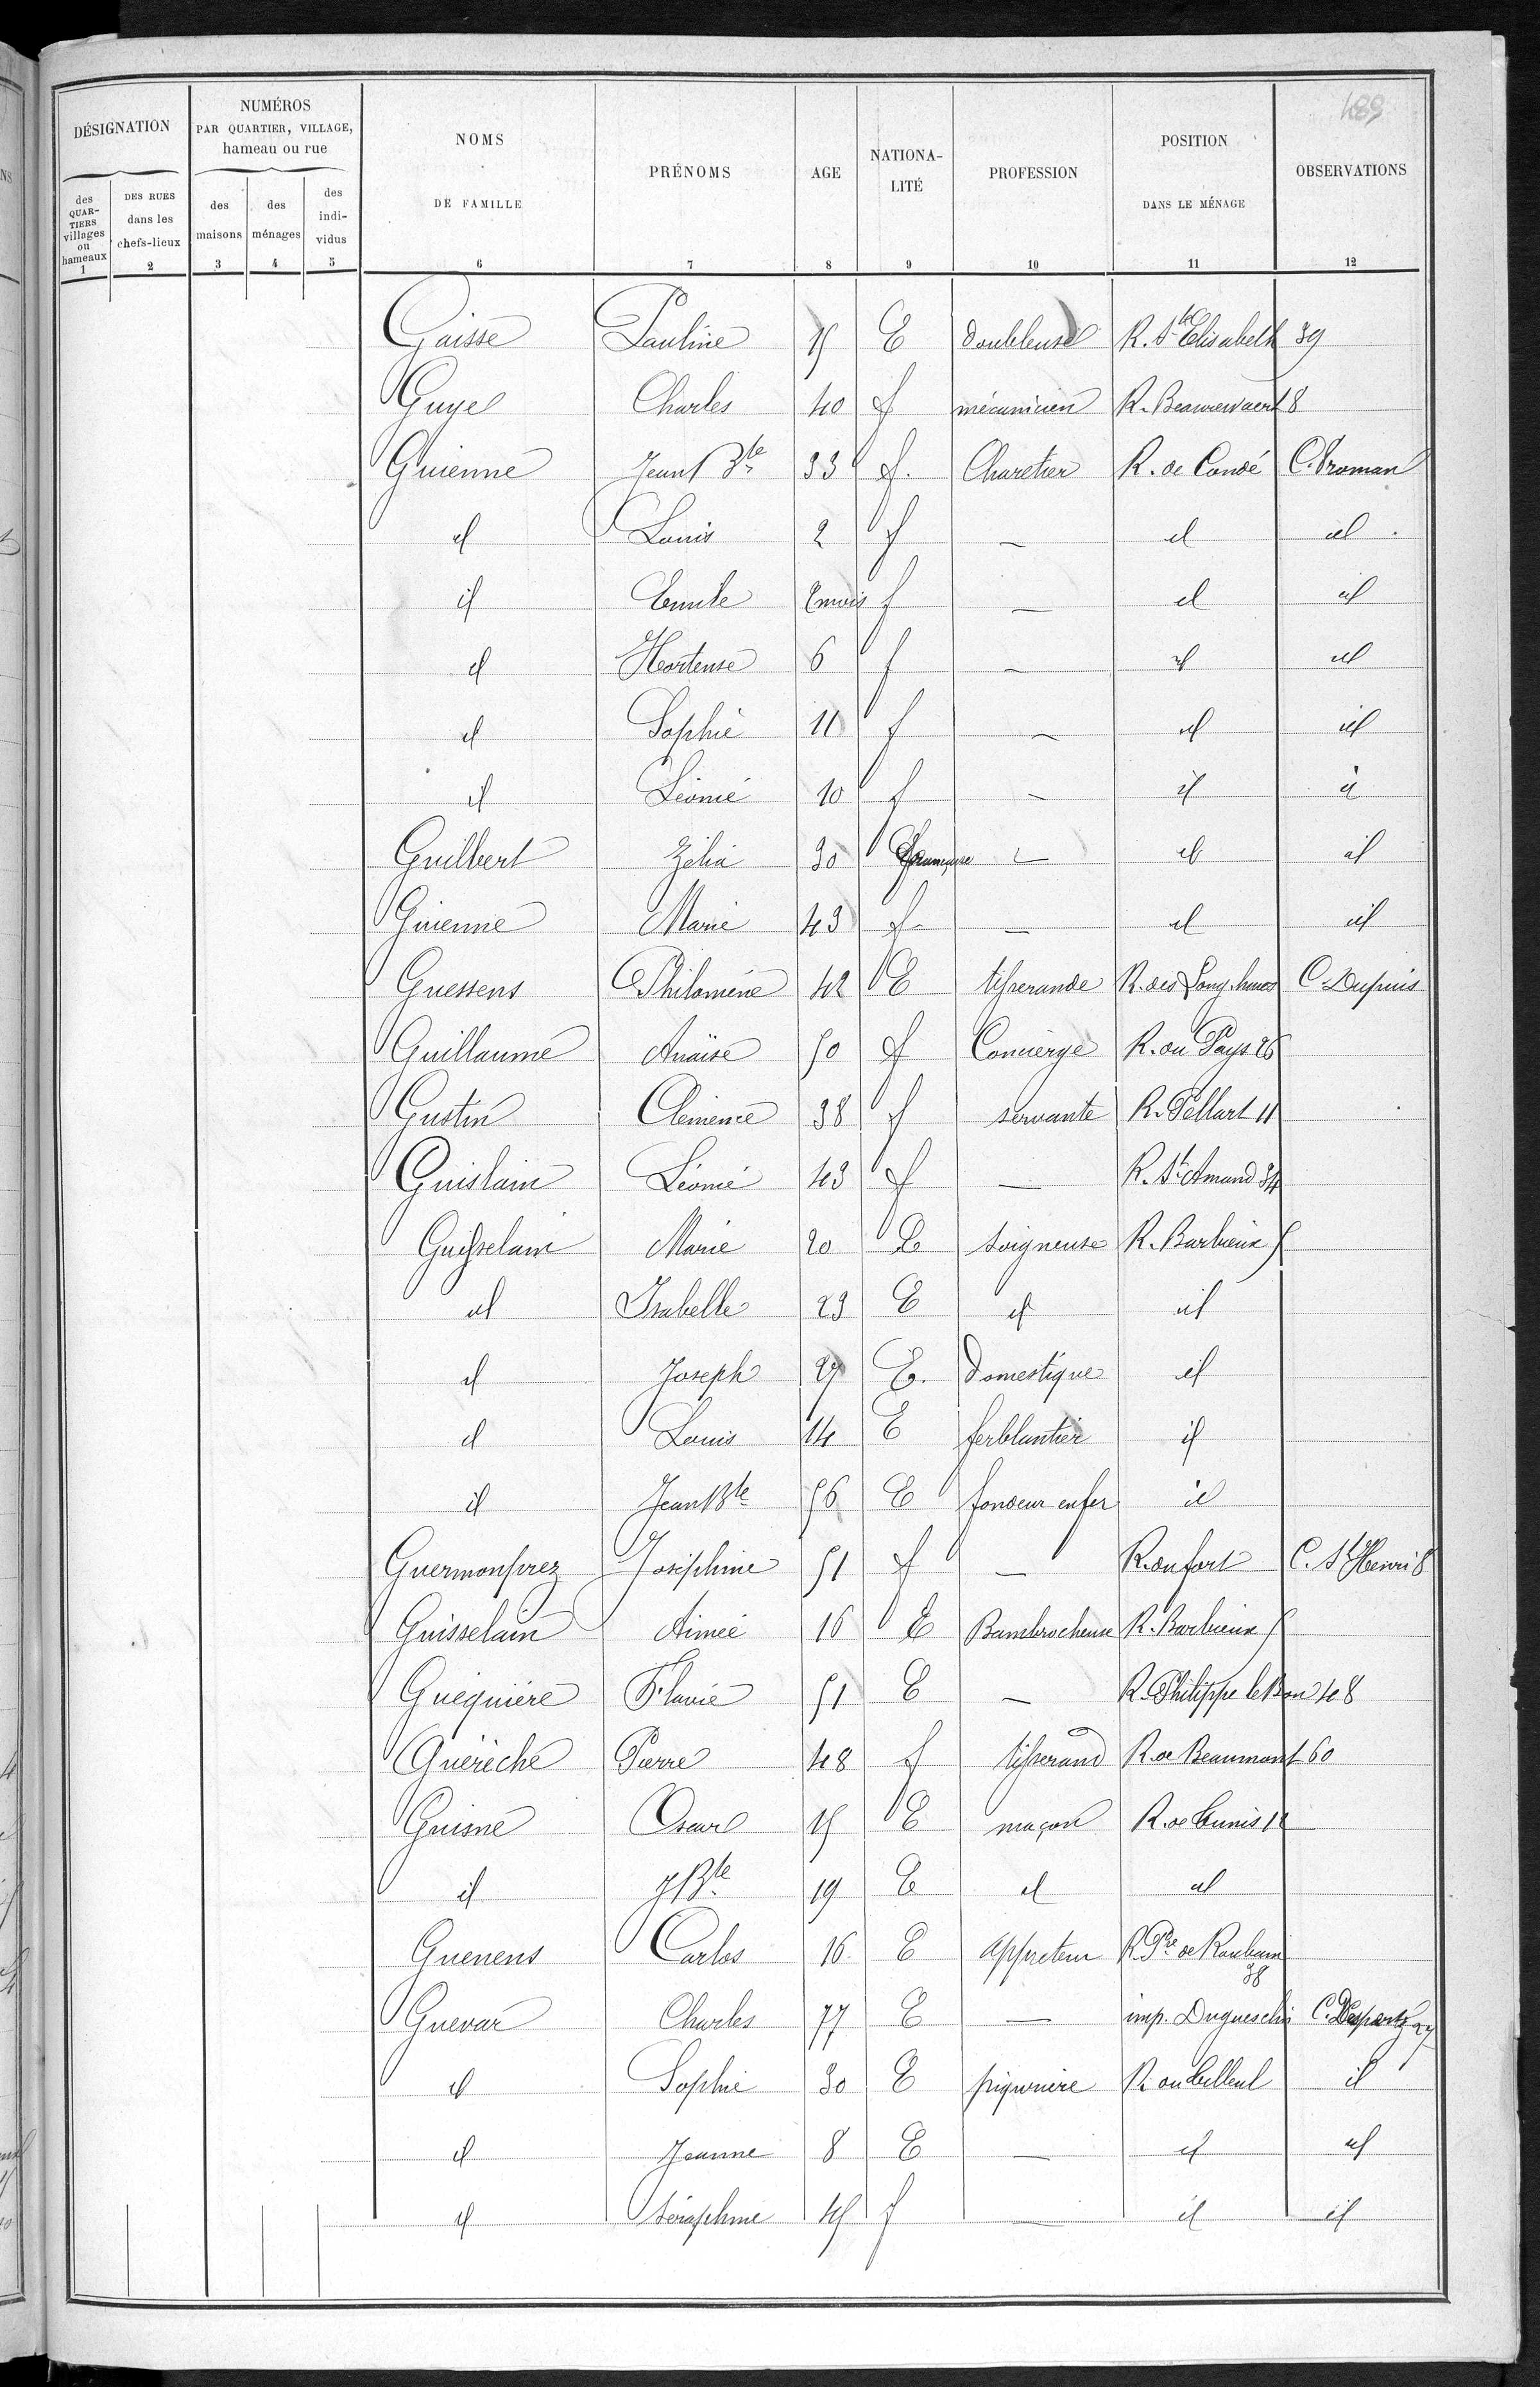 489
DÉSIGNATION
NUMÉROS
PAR QUARTIER, VILLAGE,
hameau ou rue
NOMS
DE FAMILLE
PRÉNOMS
AGE
NATIONA-
LITÉ
PROFESSION
POSITION
DANS LE MÉNAGE
OBSERVATIONS
des
QUAR-
TIERS
villages
ou
hameaux
DES RUES
dans les
chefs-lieux
des
maisons
des
ménages
des
indi-
vidus
1 2 3 4 5 6 7 8 9 10 11 12
Gaisse Pauline 15 E doubleuse R. Ste Elisabeth 39
Guye Charles 40 f mécanicien R. Beaurewaert 8
Guienne Jean Bte 33 f. Charetier R. de Condé C. Proman
id Louis 2 f — id id
id Emile 2 mois f — id id
id Hortense 6 f — id id
id Sophie 11 f — id id
id Léonie 10 f — id id
Guilbert Zélia 30 française — id id
Guienne Marie 43 f — id id
Guessens Philomène 42 E tisserande R. des Long. haies C. Dupuis
Guillaume Anaïse 50 f Concierge R. du Pays 26
Gustin Clémence 38 f servante R. Pellart 11
Guislain Léonie 43 f — R. St Amand 34
Guisselain Marie 20 E soigneuse R. Barbieux 5
id Isabelle 23 E id id
id Joseph 27 E. domestique id
id Louis 14 E ferblantier id
id Jean Bte 56 E fondeur en fer id
Guermonprez Joséphine 51 f — R. du fort C. St Henri 8
Guisselain Aimée 16 E Bambrocheuse R. Barbieux 5
Gueguière Flavie 51 E — R. Philippe le Bon 48
Quérèche Pierre 48 f tisserand R. de Beaumont 60
Guisne Oscar 15 E maçon R. de Tunis 12
id J Bte 19 E id id
Guenens Carlos 16 E appreteur R. Pre de Roubaix
38
Guevar Charles 77 E — imp. Duguesclin C. Desparts 27
id Sophie 30 E piqurière R. du tilleul id
id Jeanne 8 E — id id
id Séraphine 45 f — id id